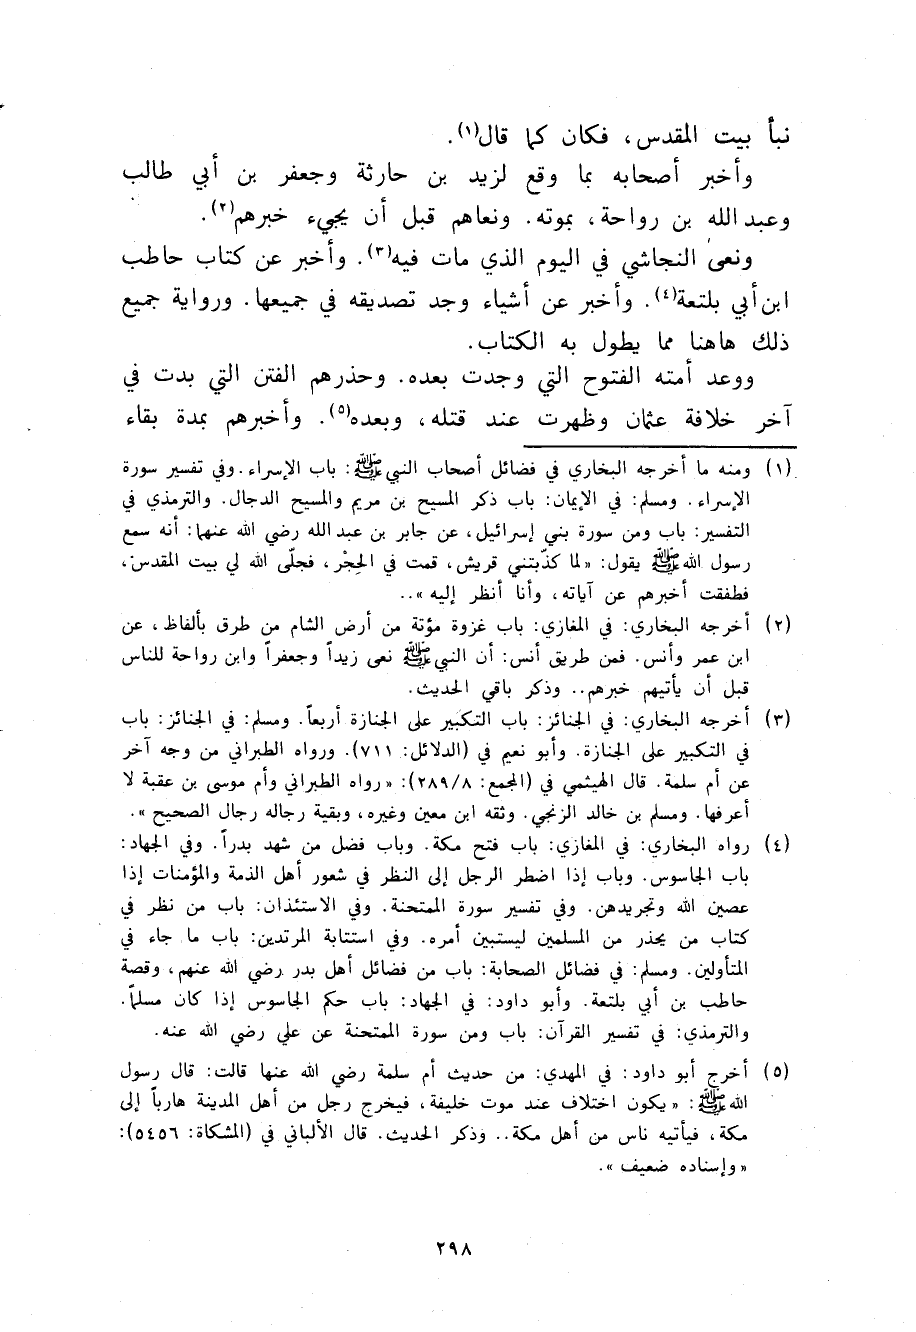 نبأ بيت المقدس، فكان كما قال(١).
وأخبر أصحابه بما وقع لزيد بن حارثة وجعفر بن أبي طالب
وعبد الله بن رواحة، بموته. ونعاهم قبل أن يجيء خبرهم(٢).
ونعى النجاشي في اليوم الذي مات فيه(٣). وأخبر عن كتاب حاطب
ابن أبي بلتعة(٤). وأخبر عن أشياء وجد تصديقه في جميعها. ورواية جميع
ذلك هاهنا مما يطول به الكتاب.
ووعد أمته الفتوح التي وجدت بعده. وحذرهم الفتن التي بدت في
آخر خلافة عثمان وظهرت عند قتله، وبعده(٥). وأخبرهم بمدة بقاء
(١) ومنه ما أخرجه البخاري في فضائل أصحاب النبي ﷺ: باب الإسراء. وفي تفسير سورة
الإسراء. ومسلم: في الإيمان: باب ذكر المسيح بن مريم والمسيح الدجال. والترمذي في
التفسير: باب ومن سورة بني إسرائيل، عن جابر بن عبد الله رضي الله عنهما: أنه سمع
رسول الله ﷺ يقول: «لما كذّبتني قريش، قمت في الحِجْر، فجلّى الله لي بيت المقدس،
فطفقت أخبرهم عن آياته، وأنا أنظر إليه»..
(٢) أخرجه البخاري: في المغازي: باب غزوة مؤتة من أرض الشام من طرق بألفاظ، عن
ابن عمر وأنس. فمن طريق أنس: أن النبي ﷺ نعى زيداً وجعفراً وابن رواحة للناس
قبل أن يأتيهم خبرهم.. وذكر باقي الحديث.
(٣) أخرجه البخاري: في الجنائز: باب التكبير على الجنازة أربعاً. ومسلم: في الجنائز: باب
في التكبير على الجنازة. وأبو نعيم في (الدلائل: ٧١١). ورواه الطبراني من وجه آخر
عن أم سلمة. قال الهيثمي في (المجمع: ٢٨٩/٨): «رواه الطبراني وأم موسى بن عقبة لا
أعرفها. ومسلم بن خالد الزنجي. وثقه ابن معين وغيره، وبقية رجاله رجال الصحيح».
(٤) رواه البخاري: في المغازي: باب فتح مكة. وباب فضل من شهد بدراً. وفي الجهاد:
باب الجاسوس. وباب إذا اضطر الرجل إلى النظر في شعور أهل الذمة والمؤمنات إذا
عصين الله وتجريدهن. وفي تفسير سورة الممتحنة. وفي الاستئذان: باب من نظر في
كتاب من يحذر من المسلمين ليستبين أمره. وفي استتابة المرتدين: باب ما جاء في
المتأولين. ومسلم: في فضائل الصحابة: باب من فضائل أهل بدر رضي الله عنهم، وقصة
حاطب بن أبي بلتعة. وأبو داود: في الجهاد: باب حكم الجاسوس إذا كان مسلماً.
والترمذي: في تفسير القرآن: باب ومن سورة الممتحنة عن علي رضي الله عنه.
(٥) أخرج أبو داود: في المهدي: من حديث أم سلمة رضي الله عنها قالت: قال رسول
الله ﷺ: «يكون اختلاف عند موت خليفة، فيخرج رجل من أهل المدينة هارباً إلى
مكة، فيأتيه ناس من أهل مكة.. وذكر الحديث. قال الألباني في (المشكاة: ٥٤٥٦):
«وإسناده ضعيف».
٢٩٨